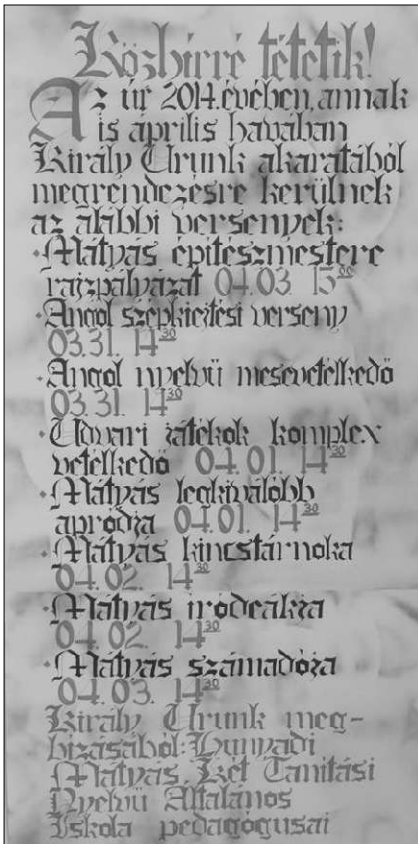 Közhírré tétetik!
Az úr 2014. évében, annak
is április havában
Király Urunk akaratából
megrendezésre kerülnek
az alábbi versenyek:
·Mátyás építészmestere
rajzpályázat 04.03 15⁰⁰
·Angol szépkiejtési verseny
03.31. 14³⁰
·Angol nyelvű mesevetélkedő
03.31. 14³⁰
·Udvari játékok komplex
vetélkedő 04.01. 14³⁰
·Mátyás legkiválóbb
apródja 04.01. 14³⁰
·Mátyás kincstárnoka
04.02. 14³⁰
·Mátyás íródeákja
04.02. 14³⁰
·Mátyás számadója
04.03. 14³⁰
Király Urunk meg-
bízásából: Hunyadi
Mátyás Két Tanítási
Nyelvű Általános
Iskola pedagógusai